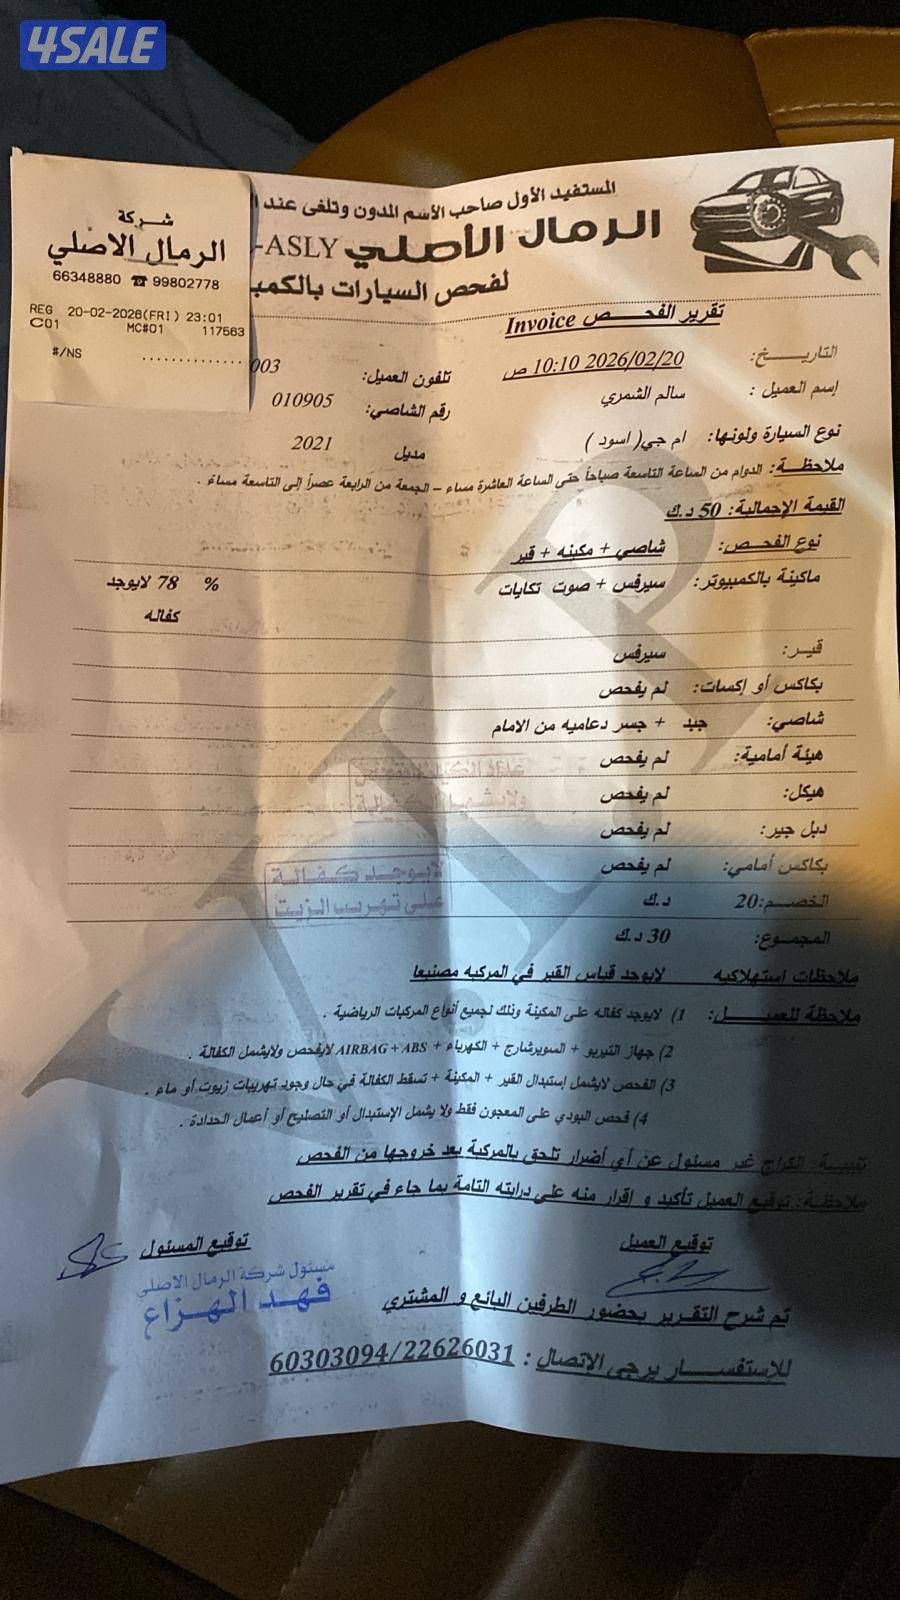 4SALE
المستفيد الأول صاحب الأسم المدون وتلغى عند
الرمال الأصلي ASLY-
لفحص السيارات بالكمب
شركة
الرمال الاصلي
66348880 ☎ 99802778
REG 20-02-2026(FRI) 23:01
C01 MC#01 117563
#/NS
تقرير الفحـــص Invoice
التاريـــخ: 2026/02/20 10:10 ص
تلفون العميل: 003
إسم العميل : سالم الشمري
رقم الشاصي: 010905
نوع السيارة ولونها: ام جي( اسود )
مديل 2021
ملاحظـــة: الدوام من الساعة التاسعة صباحاً حتى الساعة العاشرة مساء – الجمعة من الرابعة عصراً إلى التاسعة مساءً .
القيمة الإجمالية: 50 د.ك
نوع الفحـــص: شاصي + مكينه + قير
ماكينة بالكمبيوتر: سيرفس + صوت تكايات % 78 لايوجد
كفاله
قيـــر: سيرفس
بكاكس أو إكسات: لم يفحص
شاصي: جبد + جسر دعاميه من الامام
هيئة أمامية: لم يفحص
هيكل: لم يفحص
دبل جير: لم يفحص
بكاكس أمامي: لم يفحص
لايوجد كفالة
على تهريب الزيت
الخصـــم:20 د.ك
المجموع: 30 د.ك
ملاحظات إستهلاكيه لايوجد قياس القير في المركبه مصنيعا
ملاحظة للعميـــل: 1) لايوجد كفاله على المكينة وذلك لجميع أنواع المركبات الرياضية .
2) جهاز التيربو + السوبرشارج + الكهرباء + AIRBAG + ABS لايفحص ولايشمل الكفالة .
3) الفحص لايشمل إستبدال القير + المكينة + تسقط الكفالة في حال وجود تهريبات زيوت أو ماء .
4) فحص البودي على المعجون فقط ولا يشمل الإستبدال أو التصليح أو أعمال الحدادة .
تنبيـــة: الكراج غير مسئول عن أي أضرار تلحق بالمركبة بعد خروجها من الفحص
ملاحظـــة: توقيع العميل تأكيد و إقرار منه على درايته التامة بما جاء في تقرير الفحص
توقيع العميل
توقيع المسئول
مسئول شركة الرمال الاصلي
فهـد الهـزاع
تم شرح التقـرير بحضور الطرفين البائع و المشتري
للإستفســـار يرجى الإتصال : 60303094/22626031
VIP